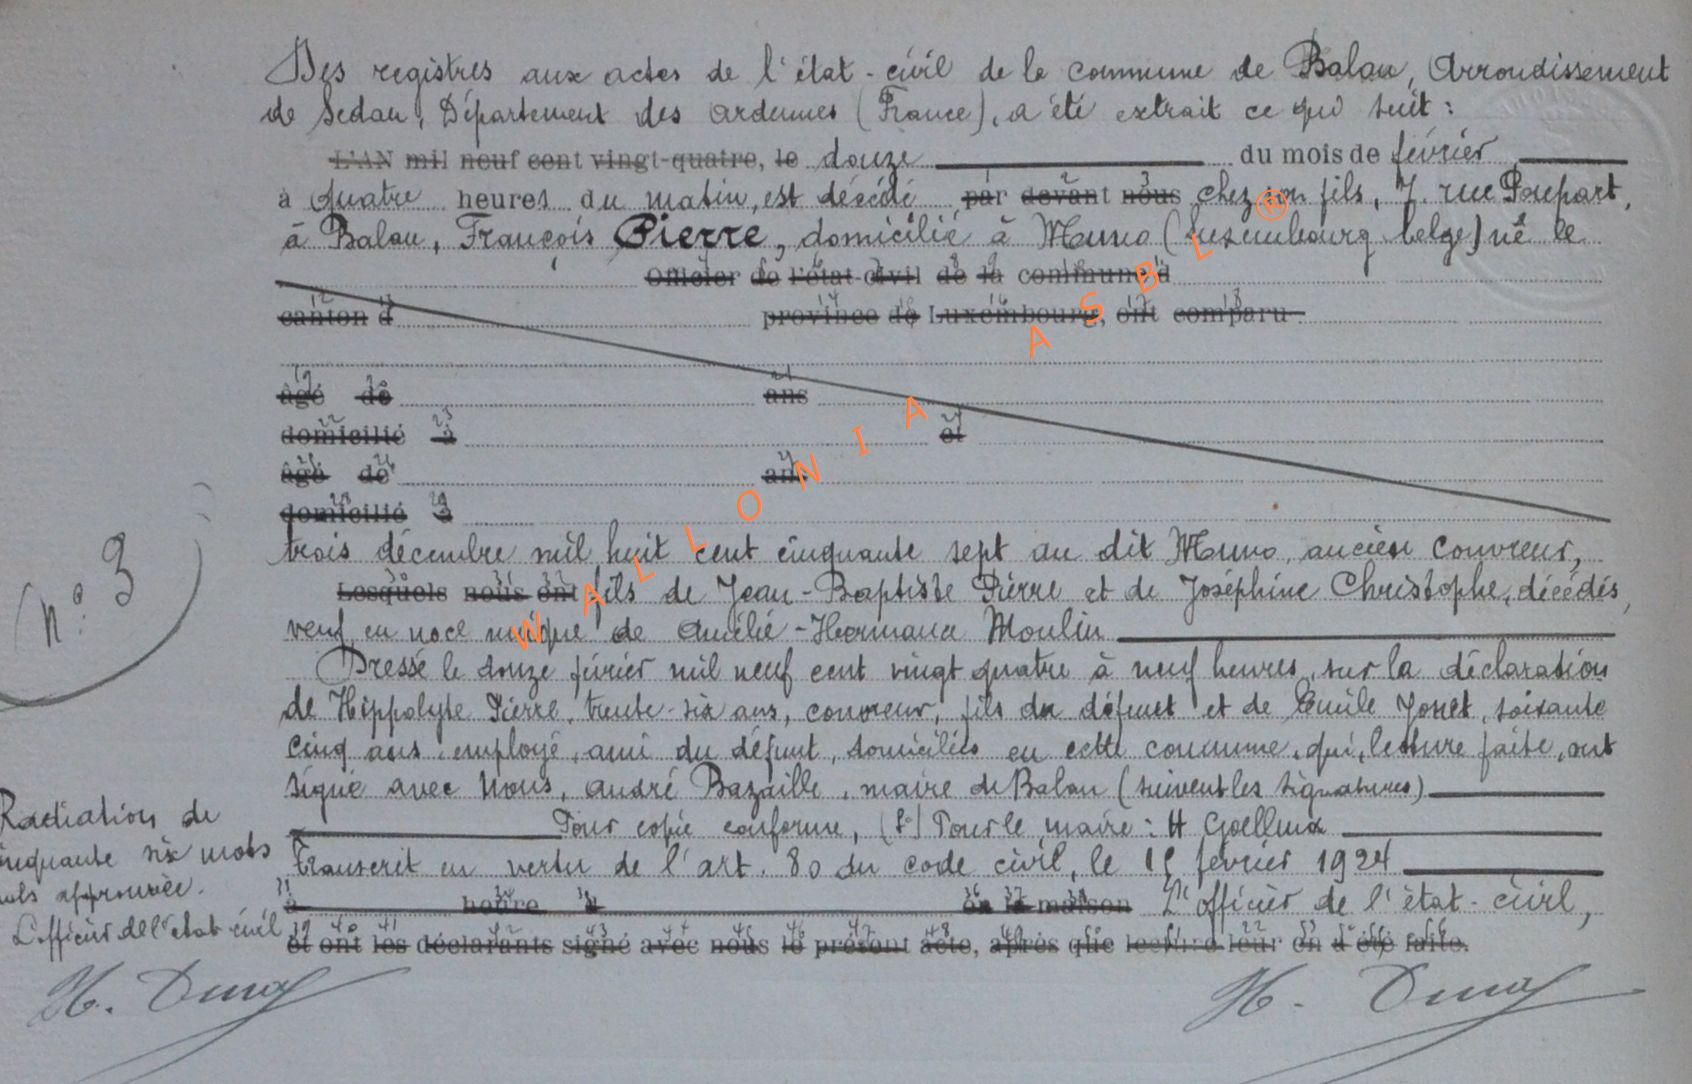 Des registres aux actes de l'état-civil de la commune de Balan, Arrondissement
de Sedan, Département des Ardennes (France), a été extrait ce qui suit :
L'AN mil neuf cent vingt-quatre, le douze du mois de février
à quatre heures du matin, est décédé par devant nous chez son fils, 7, rue Poupart,
à Balan, François Pierre, domicilié à Muno (Luxembourg belge) né le
officier de l'état-civil de la commune d
canton d province de Luxembourg, ont comparu
âgé de ans
domicilié à et
âgé de ans
domicilié à
trois décembre mil huit cent cinquante sept au dit Muno, ancien couvreur,
Lesquels nous ont fils de Jean-Baptiste Pierre et de Joséphine Christophe, décédés,
veuf en noce unique de Amélie-Hermance Moulin
Dressé le douze février mil neuf cent vingt quatre à neuf heures, sur la déclaration
de Hippolyte Pierre, trente-six ans, couvreur, fils du défunt et de Emile Jonet, soixante
cinq ans, employé, ami du défunt, domiciliés en cette commune, qui, lecture faite, ont
signé avec Nous, André Bazaille, maire de Balan (suivent les signatures)
Pour copie conforme, (s) Pour le maire : H
Transcrit en vertu de l'art. 80 du code civil, le février 1924
à heure à en la maison L'officier de l'état-civil,
et ont les déclarants signé avec nous le présent acte, après que lecture leur en a été faite.
H. Duray
n° 3
Radiation de
cinquante six mots
nuls approuvée.
L'officier de l'état civil
H. Duray
WALLONIA ASBL ®